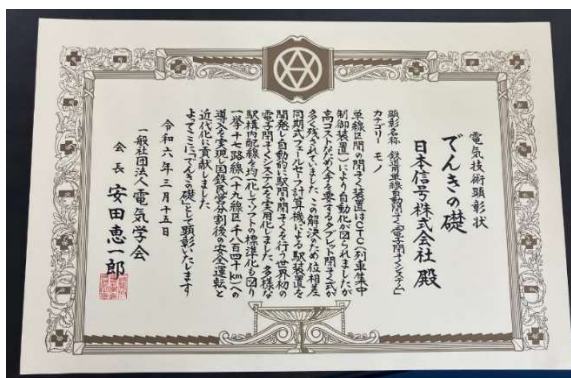 電気技術顕彰状
でんきの礎
日本信号株式会社 殿
顕彰名称 鉄道用単線自動閉そく「電子閉そくシステム」
カテゴリー モノ
単線区間の閉そく装置はCTC(列車集中
制御装置)により自動化が図られましたが
高コストなため人手を要するタブレット閉そく式が
多く残されていました この解決のため位相差
同期式フェールセーフ計算機による駅装置を
開発し自動的に駅間の閉そくを行う世界初の
電子閉そくシステムを実用化しました 多様な
駅構内配線を均一化してソフトの標準化も図り
一挙十七路線(十九線区千八百四十km)への
導入を実現し国鉄民営分割後の安全運転と
近代化に貢献しました
よってここに「でんきの礎」として顕彰いたします
令和六年三月十五日
一般社団法人電気学会
会長 安田恵一郎